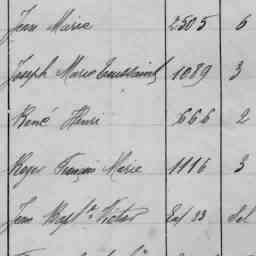 Jean Marie 2505 6
Joseph Marie Toussaint 1089 3
René Henri 666 2
Roger François Marie 1116 3
Jean Bapt.te Victor 33